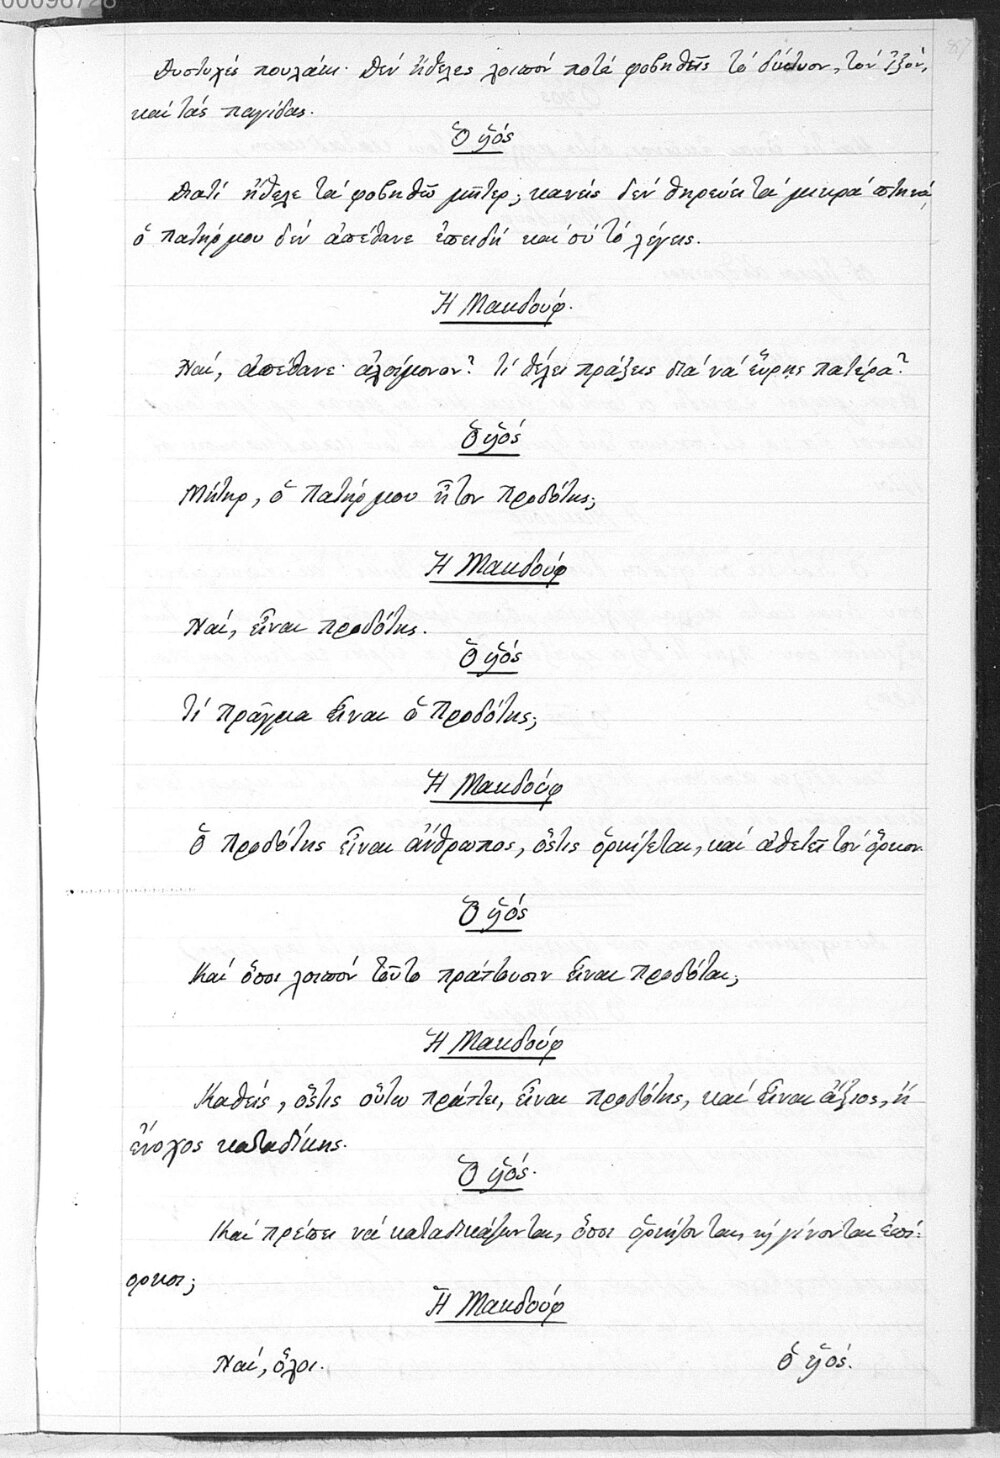 00096728
87
Δυστυχές πουλάκι· Δέν ἤθελες λοιπόν ποτέ φοβηθεῖς τό δίκτυον, τόν ἰξόν,
καί τάς παγίδας.
Ὁ υἱός
Διατί ἤθελε τά φοβηθῶ μῆτερ; κανείς δέν θηρεύει τά μικρά πτηνά,
ὁ πατήρ μου δέν ἀπέθανε ἐπειδή καί σύ τό λέγεις.
Ἡ Μακδούφ.
Ναί, ἀπέθανε· ἀλοίμονον! τί θέλει πράξεις διά νά εὕρῃς πατέρα?
Ὁ υἱός
Μήτηρ, ὁ πατήρ μου ἦτον προδότης;
Ἡ Μακδούφ
Ναί, εἶναι προδότης.
Ὁ υἱός
Τί πρᾶγμα εἶναι ὁ προδότης;
Ἡ Μακδούφ
Ὁ προδότης εἶναι ἄνθρωπος, ὅστις ὁρκίζεται, καί ἀθετεῖ τόν ὅρκον
Ὁ υἱός
Καί ὅσοι λοιπόν τοῦτο πράττουσιν εἶναι προδόται;
Ἡ Μακδούφ
Καθείς, ὅστις οὕτω πράττει, εἶναι προδότης, καί εἶναι ἄξιος, ἤ
ἔνοχος καταδίκης.
Ὁ υἱός.
Καί πρέπει νά καταδικάζωνται, ὅσοι ὁρκίζονται, καί γίνονται ἐπί-
ορκοι;
Ἡ Μακδούφ
Ναί, ὅλοι.
Ὁ υἱός.